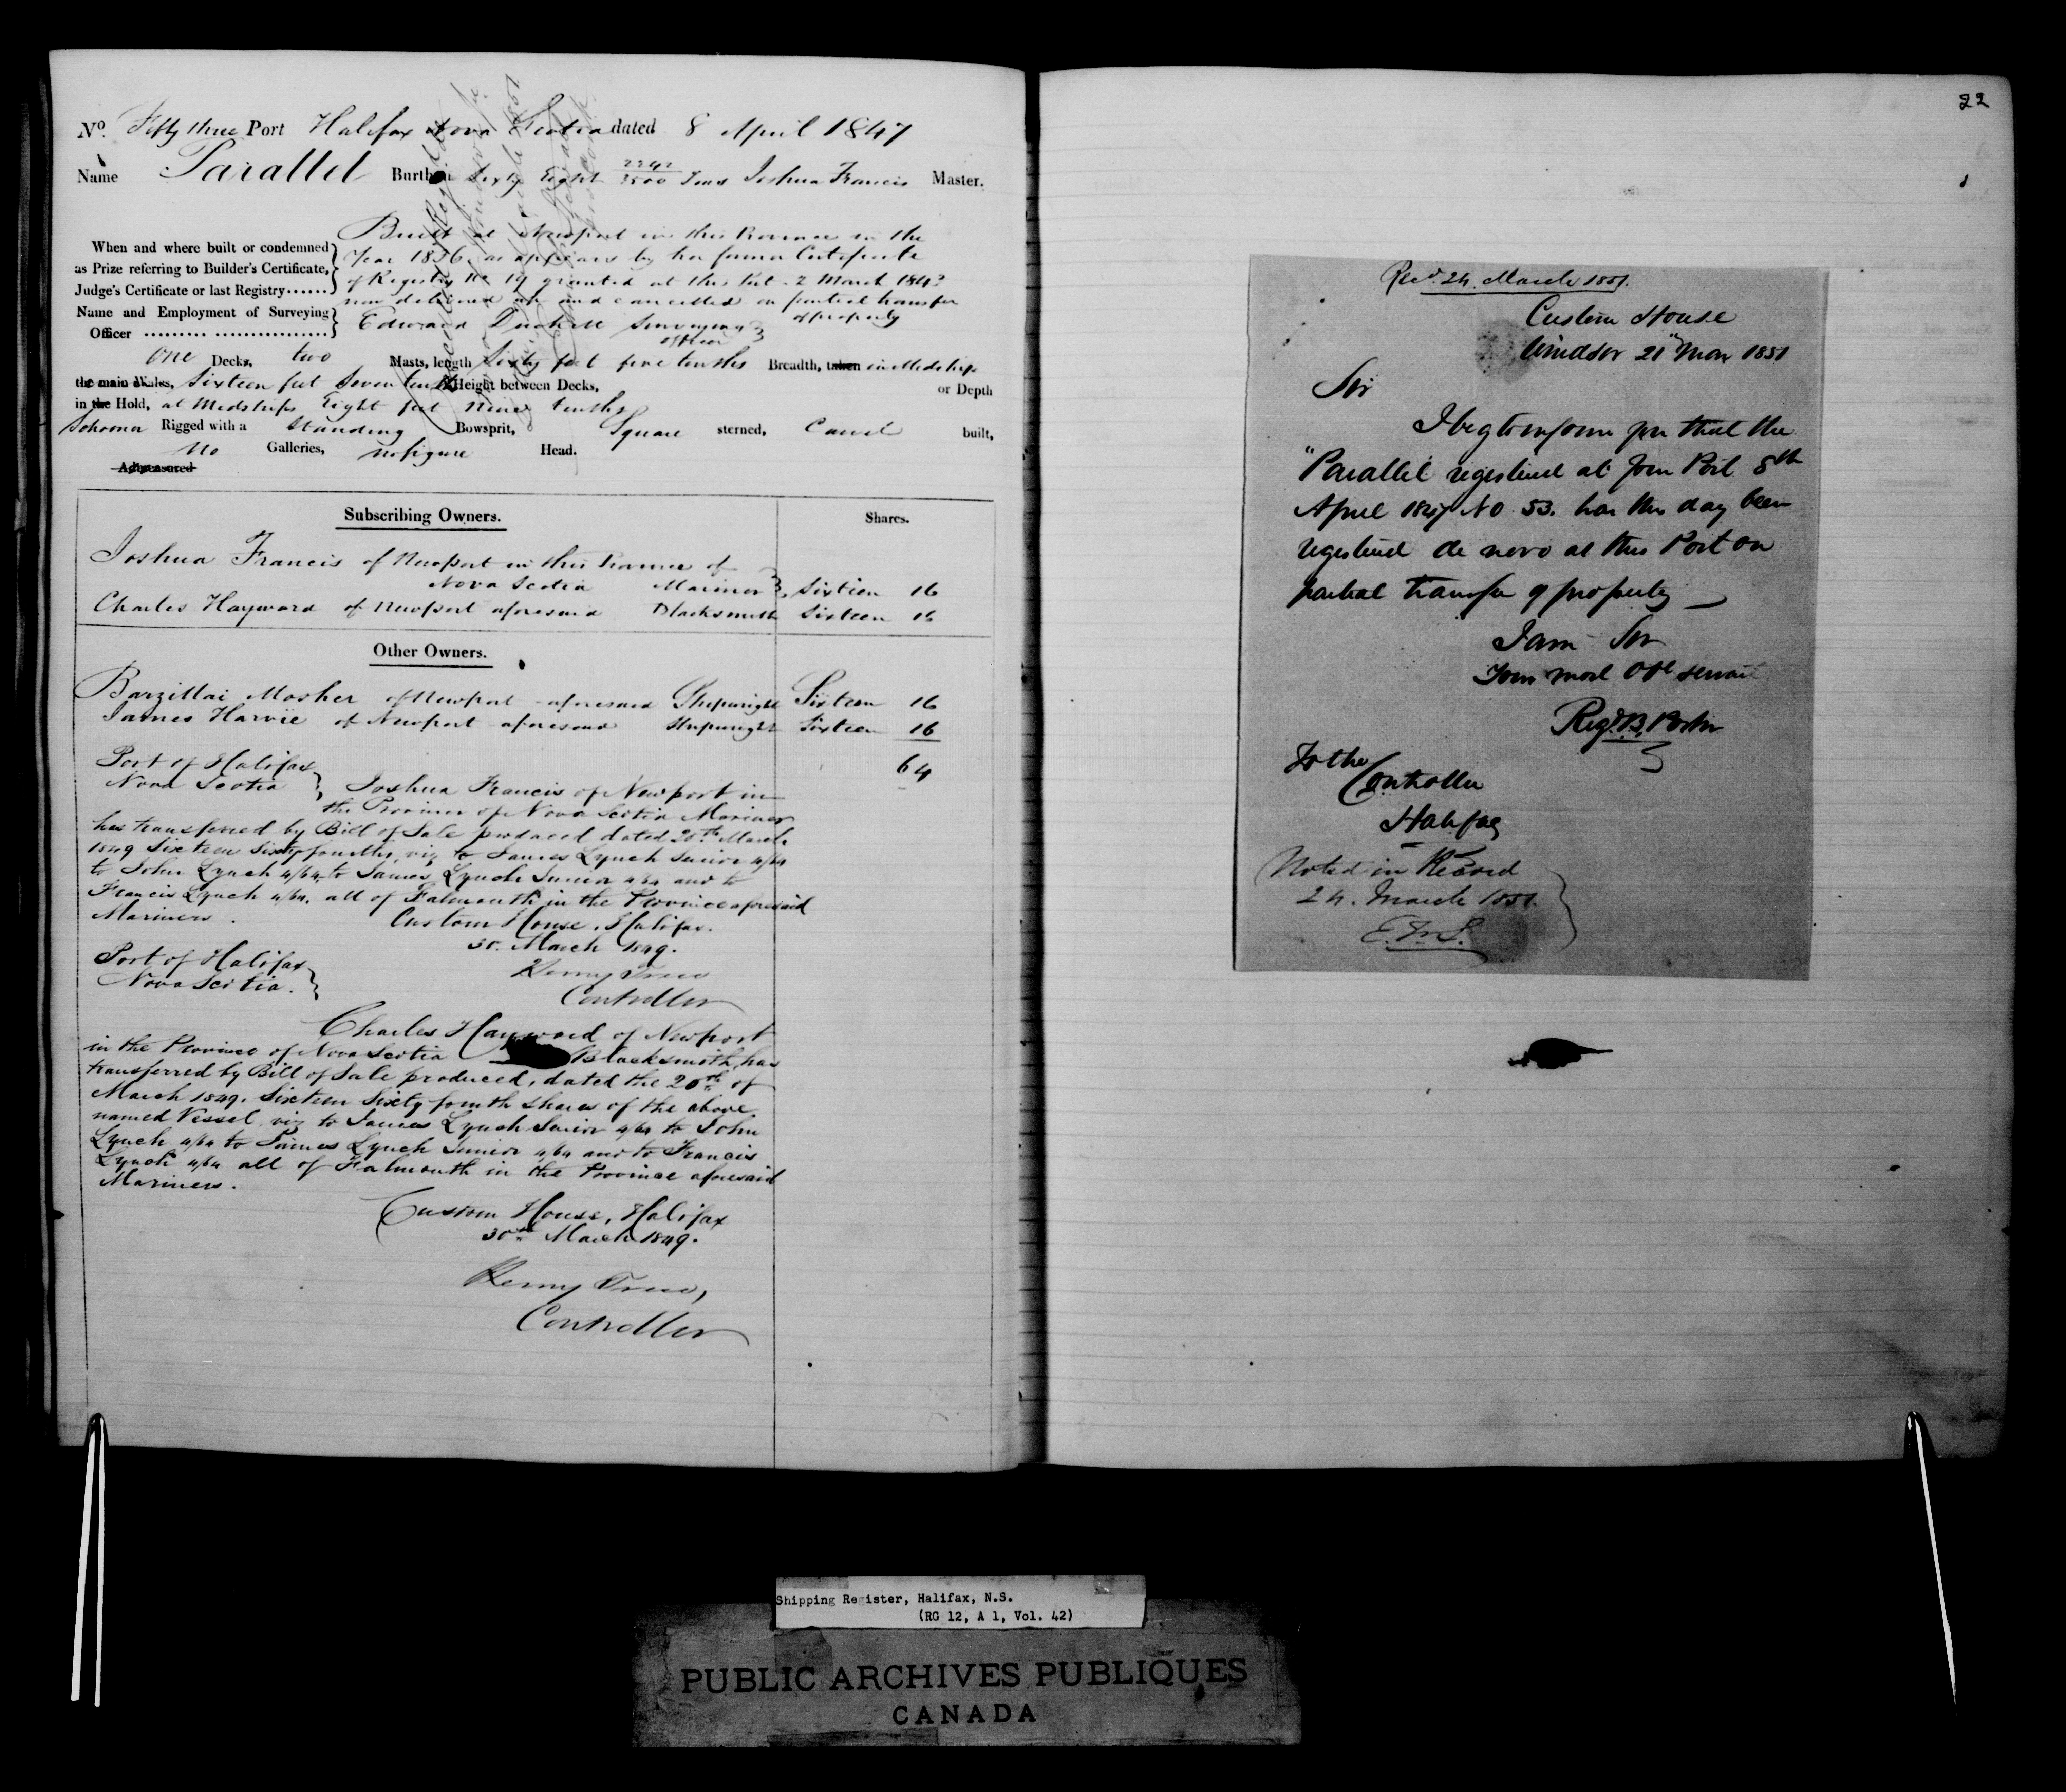 No. Fifty three Port Halifax Nova Scotia dated 8 April 1847
Name Parallel Burthen Sixty Eight 2242/3500 Tons Joshua Francis Master.
Built at Newport in this Province in the
When and where built or condemned
Year 1836 as appears by her former Certificate
as Prize referring to Builder's Certificate,
of Registry No 19 granted at this Port 2 March 1843
Judge's Certificate or last Registry......
now delivered up and cancelled on partial transfer
of property
Name and Employment of Surveying
Officer ......... ................
Edward Surveying
officer
One Decks, two Masts, length Sixty feet five tenths Breadth, taken in Midships
the main Wales, Sixteen feet Seven tenths Height between Decks, or Depth
in the Hold, at Midships Eight feet Nine tenths
Schooner Rigged with a Standing Bowsprit, Square sterned, Carvel built,
No Galleries, no figure Head.
Admeasured
Subscribing Owners. Shares.
Joshua Francis of Newport in this Province of
Nova Scotia Mariner Sixteen 16
Charles Hayward of Newport aforesaid Blacksmith Sixteen 16
Other Owners.
Barzillai Mosher of Newport aforesaid Shipwright Sixteen 16
James Harvie of Newport aforesaid Shipwright Sixteen 16
64
Port of Halifax
Nova Scotia
Joshua Francis of Newport in
the Province of Nova Scotia Mariner
has transferred by Bill of Sale produced dated 20th March
1849 Sixteen Sixty fourths, viz to James Lynch Senior 4/64
to John Lynch 4/64, to James Lynch Junior 4/64 and to
Francis Lynch 4/64, all of Falmouth in the Province aforesaid
Mariners.
Custom House, Halifax.
30. March 1849.
Henry Trew
Controller
Port of Halifax
Nova Scotia.
Charles Hayward of Newport
in the Province of Nova Scotia Blacksmith, has
transferred by Bill of Sale produced, dated the 20th of
March 1849, Sixteen Sixty fourth shares of the above
named Vessel, viz to James Lynch Senior 4/64 to John
Lynch 4/64 to James Lynch Junior 4/64 and to Francis
Lynch 4/64 all of Falmouth in the Province aforesaid
Mariners.
Custom House, Halifax
30th March 1849.
Henry Trew,
Controller
22
Recd. 24. March 1851.
Custom House
Windsor 21" Mar 1851
Sir
I beg to inform you that the
"Parallel registered at your Port 8th
April 1847 No 53. has this day been
registered de novo at this Port on
partial transfer of property
I am Sir
Your most Obt servant
To the
Controller
Halifax
Noted in Record
24. March 1851.
Shipping Register, Halifax, N.S.
(RG 12, A 1, Vol. 42)
PUBLIC ARCHIVES PUBLIQUES
CANADA